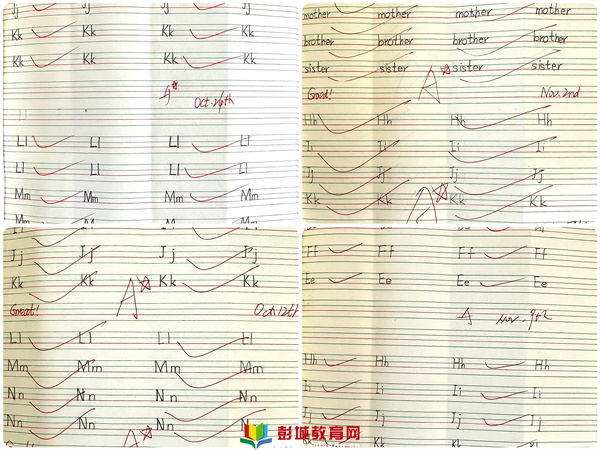 Jj Jj Jj Jj
Kk Kk Kk Kk
Kk Kk Kk Kk
A
Oct. 26th
Ll Ll Ll Ll
Ll Ll Ll Ll
Mm Mm Mm Mm
mother mother mother mother
brother brother brother brother
sister sister sister sister
Good! A Nov. 2nd
Hh Hh Hh Hh
Ii Ii Ii Ii
Jj Jj Jj Jj
Kk Kk Kk Kk
A
Jj Jj Jj Jj
Kk Kk Kk Kk
Great! A Oct. 12th
Ll Ll Ll Ll
Mm Mm Mm Mm
Nn Nn Nn Nn
Nn Nn Nn N
A
Ff Ff Ff Ff
Ee Ee Ee Ee
A Nov. 9th
Hh Hh Hh Hh
Ii Ii Ii Ii
Jj Jj Jj Jj
彭城教育网